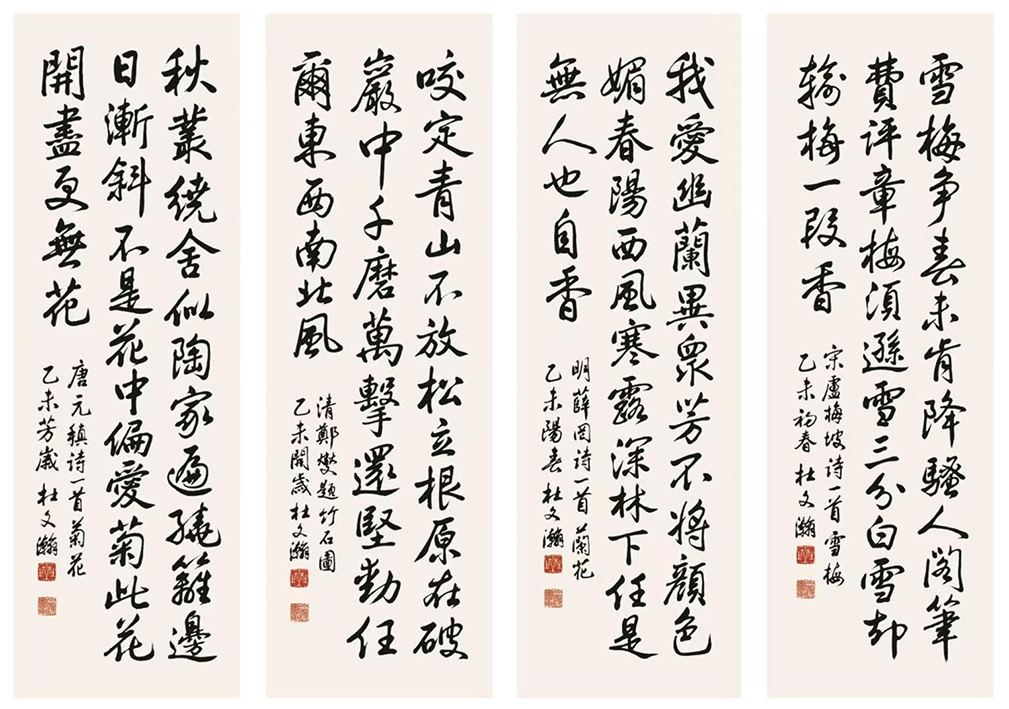 雪梅争春未肯降騷人阁筆
費评章梅須遜雪三分白雪却
輸梅一段香
宋盧梅坡诗一首雪梅
乙未初春杜文瀚
我愛幽蘭異眾芳不將顏色
媚春陽西風寒露深林下任是
無人也自香
明薛网诗一首蘭花
乙未陽春杜文瀚
咬定青山不放松立根原在破
巖中千磨萬擊還堅勁任
爾東西南北風
清鄭燮題竹石圖
乙未開歲杜文瀚
秋叢繞舍似陶家遍繞籬邊
日漸斜不是花中偏愛菊此花
開盡更無花
唐元稹诗一首菊花
乙未芳歲杜文瀚